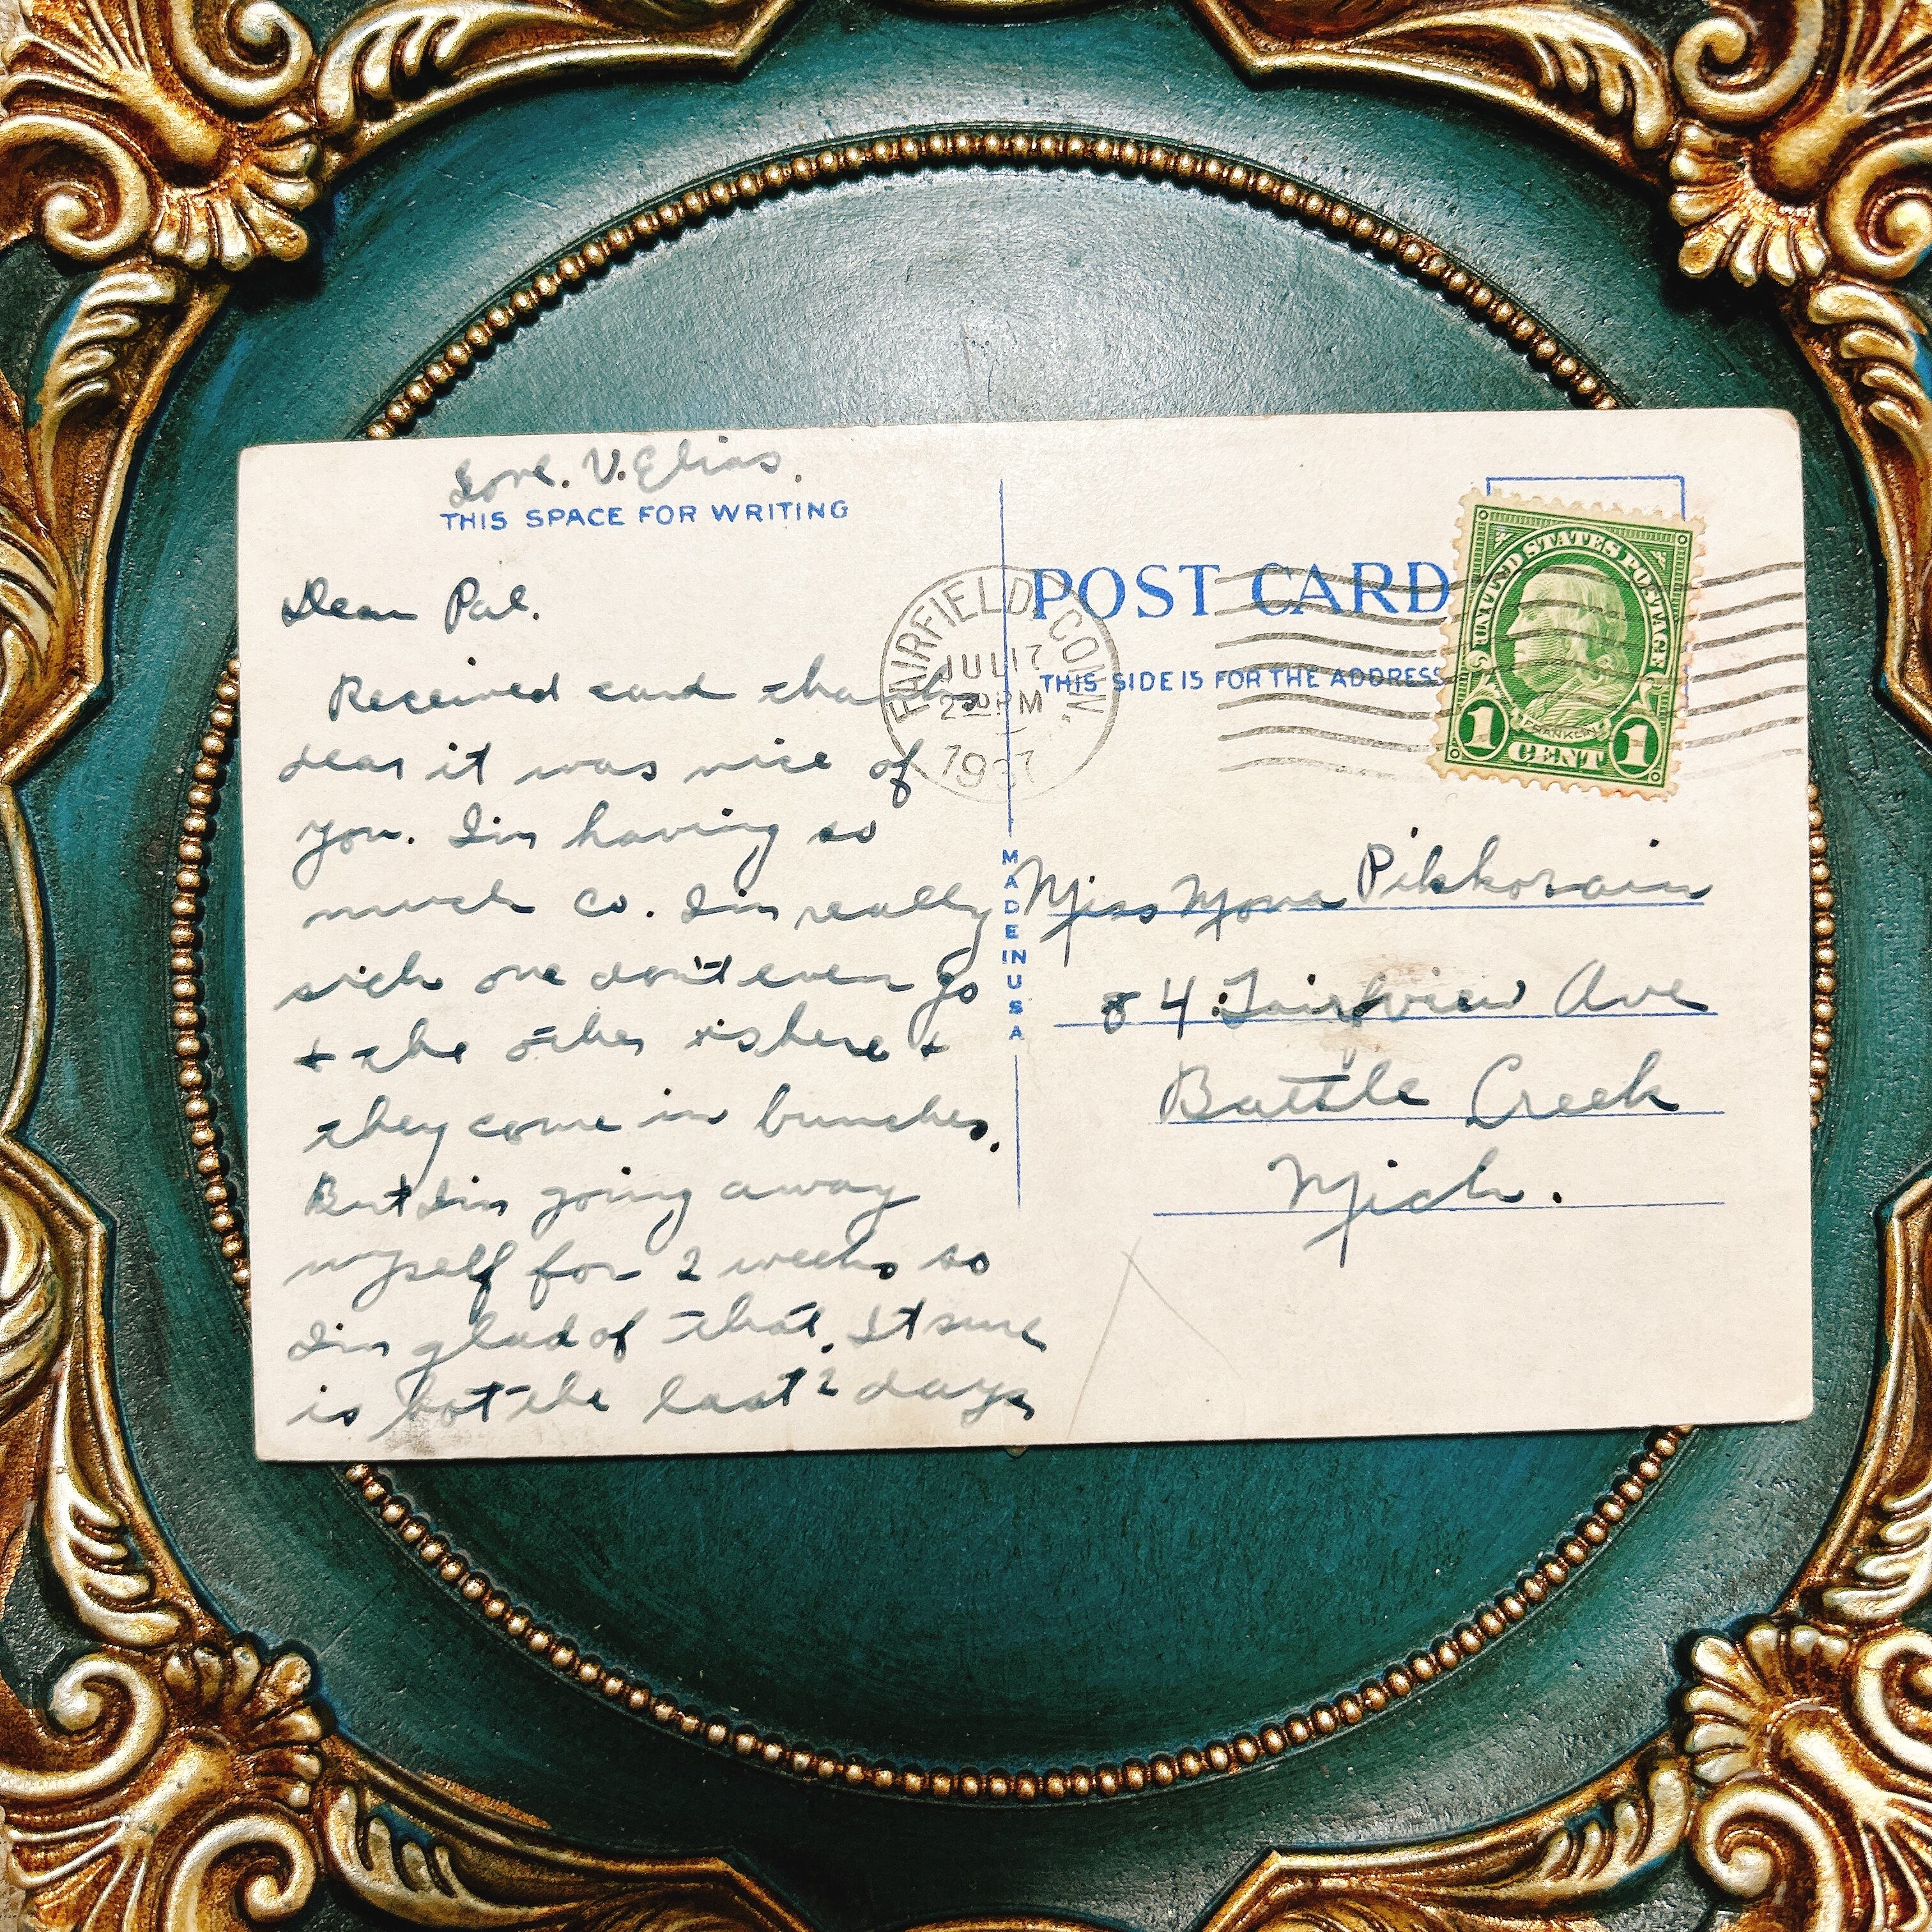 Love. V. Elias.
THIS SPACE FOR WRITING
Dear Pal.
Received card thanks
dear it was nice of
you. I'm having so
much co. I'm really
sick one don't even go
+ the other is here +
they come in bunches.
But I'm going away
myself for 2 weeks so
I'm glad of that. It sure
is hot the last 2 days
FAIRFIELD, CONN.
JUL 17
2 30 PM
1937
POST CARD
THIS SIDE IS FOR THE ADDRESS
UNITED STATES POSTAGE
FRANKLIN
1 CENT 1
MADE IN USA
Miss Mona
84 Fairview Ave
Battle Creek
Mich.